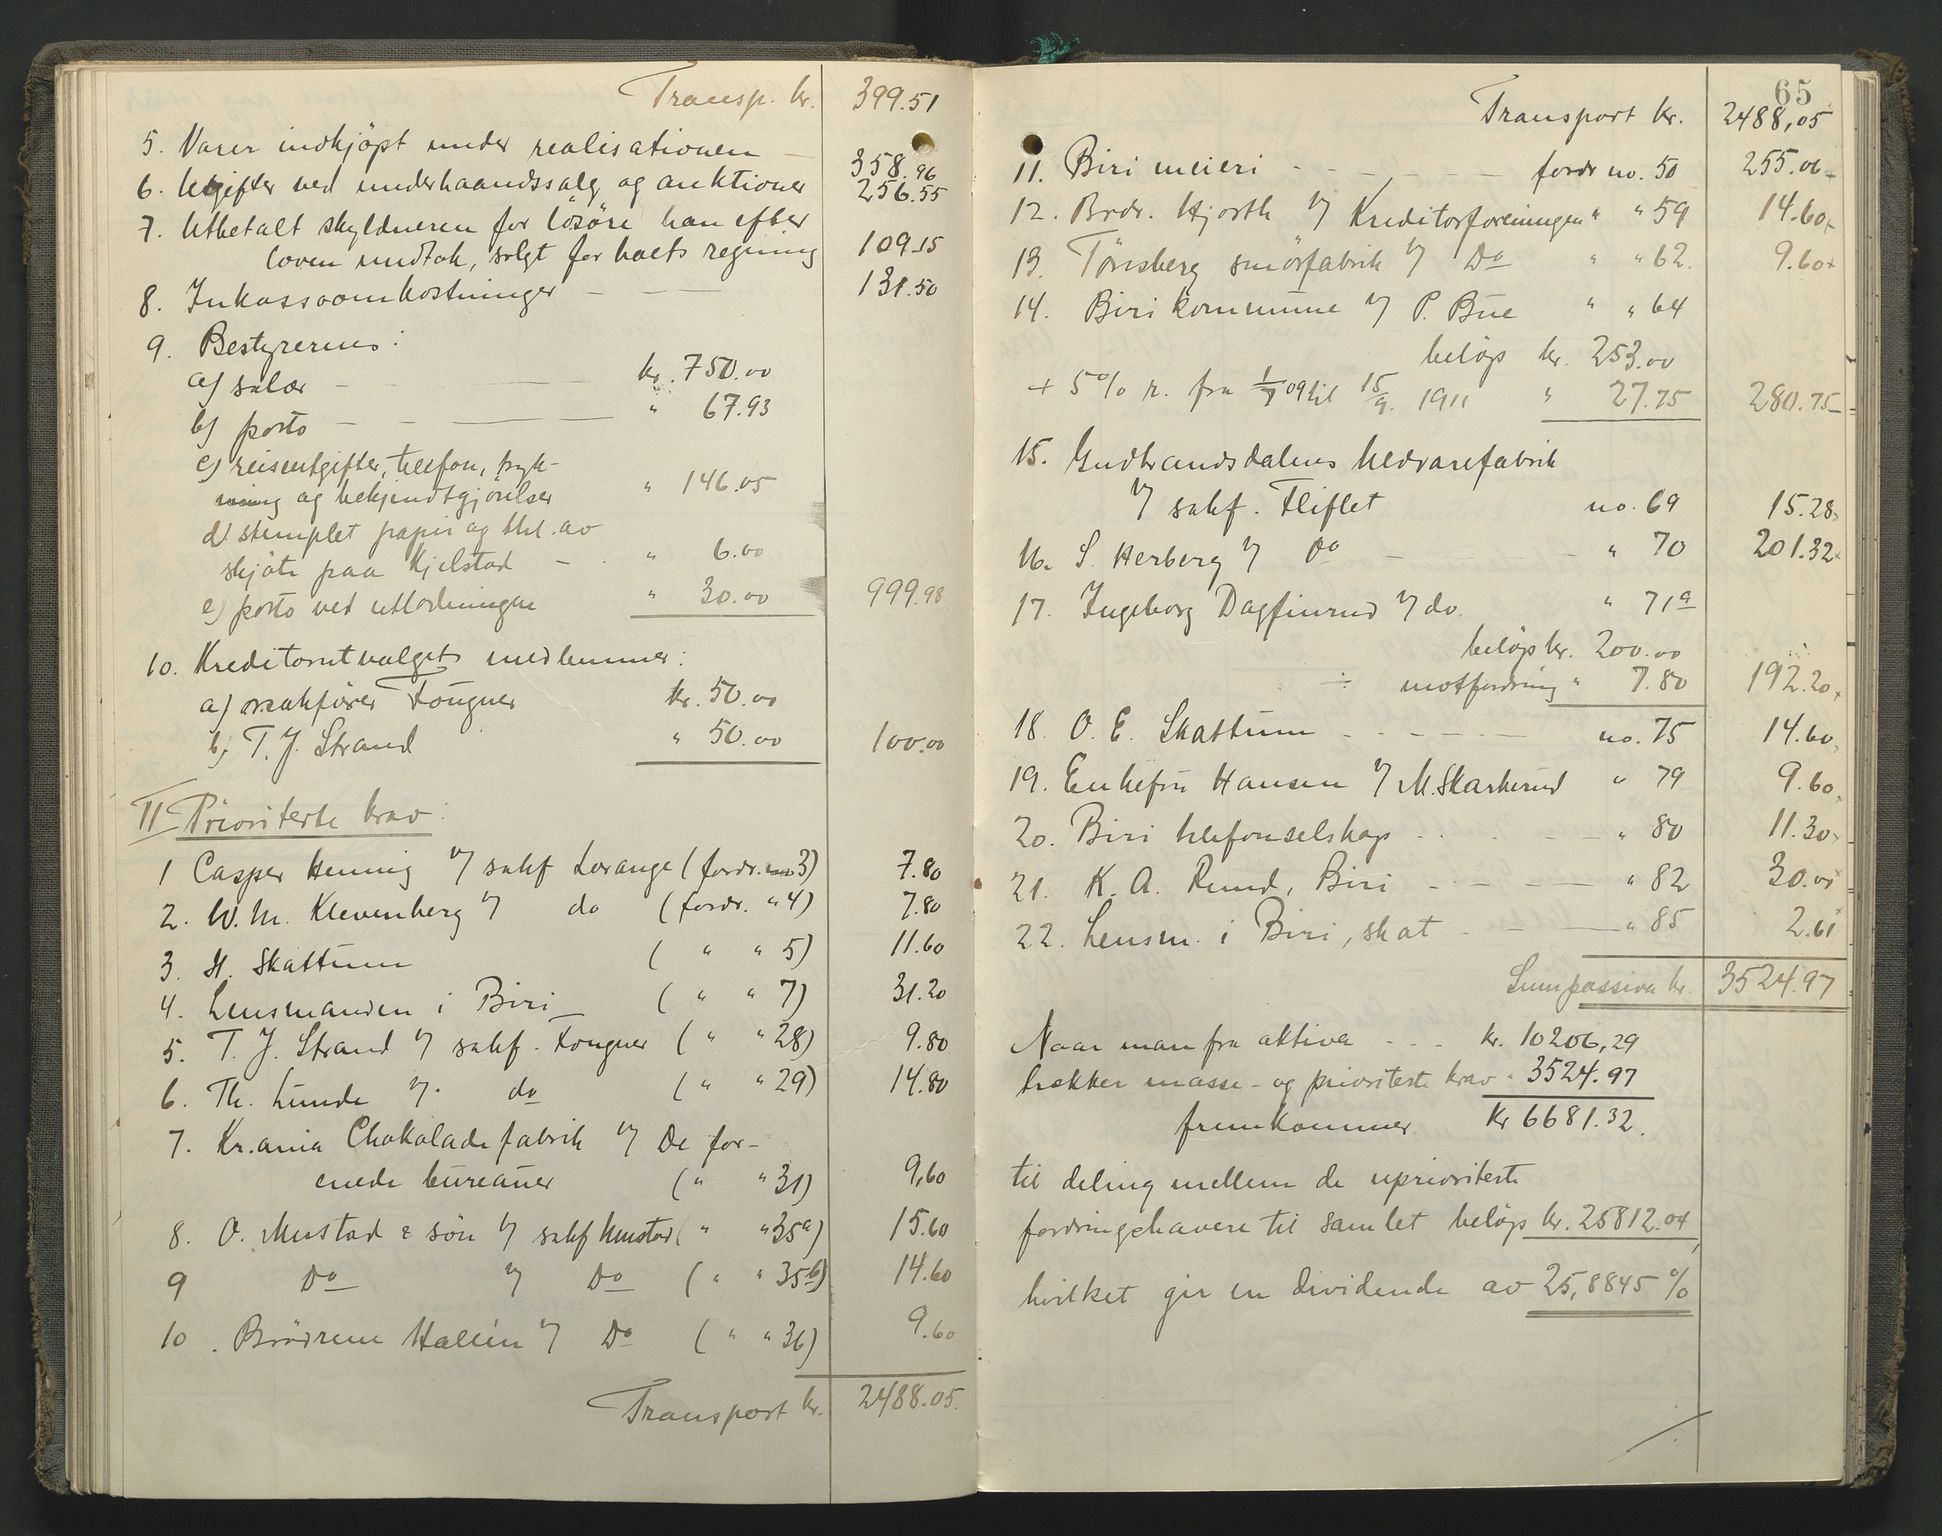 Transp. kr. 399.51
5. Varer indkjöpt under realisationen 358.96
6. Utgifter ved underhaandssalg og auktioner 256.55
7. Utbetalt skyldneren for lösöre han efter
loven undtok, solgt for boets regning 109.15
8. Inkassoomkostninger 131.50
9. Bestyrerens:
a) salær kr. 750.00
b) porto " 67.93
c) reiseutgifter, telefon, tryk-
ning og bekjendtgjörelser " 146.05
d) stemplet papir og thl. av
skjöte paa Kjelstad " 6.00
e) porto ved utlodningen " 30.00 999.98
10. Kreditorutvalgets medlemmer:
a) o.r.sakförer Fougner kr. 50.00
b) T. J. Strand " 50.00 100.00
II Prioriterte krav:
1 Casper Hennig v/ sakf Lorange (fordr. no 3) 7.80
2. W. M. Klevenberg v/ do (fordr. " 4) 7.80
3. H. Skattum ( " " 5) 11.60
4. Lensmanden i Biri ( " " 7) 31.20
5. T. J. Strand v/ sakf. Fougner ( " " 28) 9.80
6. Th. Lunde v/ do ( " " 29) 14.80
7. Kr.ania Chokoladefabrik v/ De for-
enede bureauer ( " " 31) 9,60
8. O. Mustad & sön v/ sakf Mustad ( " " 35a) 15.60
9 Do v/ Do ( " " 35b) 14.60
10. Brödrene Hallén v/ Do ( " " 36) 9.60
Transport kr. 2488.05.
65
Transport kr. 2488,05
11. Biri meieri fordr no. 50 255.06
12. Brdr. Hjorth v/ Kreditorforeningen " " 59 14.60
13. Tønsberg smörfabrik v/ Do " " 62. 9.60
14. Biri kommune v/ P. Bue " " 64
belöp kr. 253.00
+ 5% r. fra 1/7 09 til 15/9. 1911 " 27.75 280.75
15. Gudbrandsdalens Uldvarefabrik
v/ sakf. Fliflet no. 69 15.28
16. S. Herberg v/ Do " 70 201.32
17. Ingeborg Dagfinrud v/ do. " 71a
belöp kr. 200.00
÷ motfordring " 7.80 192.20
18. O. E. Skattum no. 75 14.60
19. Enkefru Hansen v/ M. Skarkerud " 79 9.60
20. Biri telefonselskap " 80 11.30
21. K. A. Rund, Biri " 82 30.00
22. Lensm. i Biri, skat " 85 2.61
Sum passiva kr. 3524.97
Naar man fra aktiva kr. 10206,29
trekker masse- og prioriterte krav " 3524.97
fremkommer Kr 6681.32.
til deling mellem de uprioriterte
fordringshavere til samlet belöp kr. 25812.04,
hvilket gir en dividende av 25,8845 %